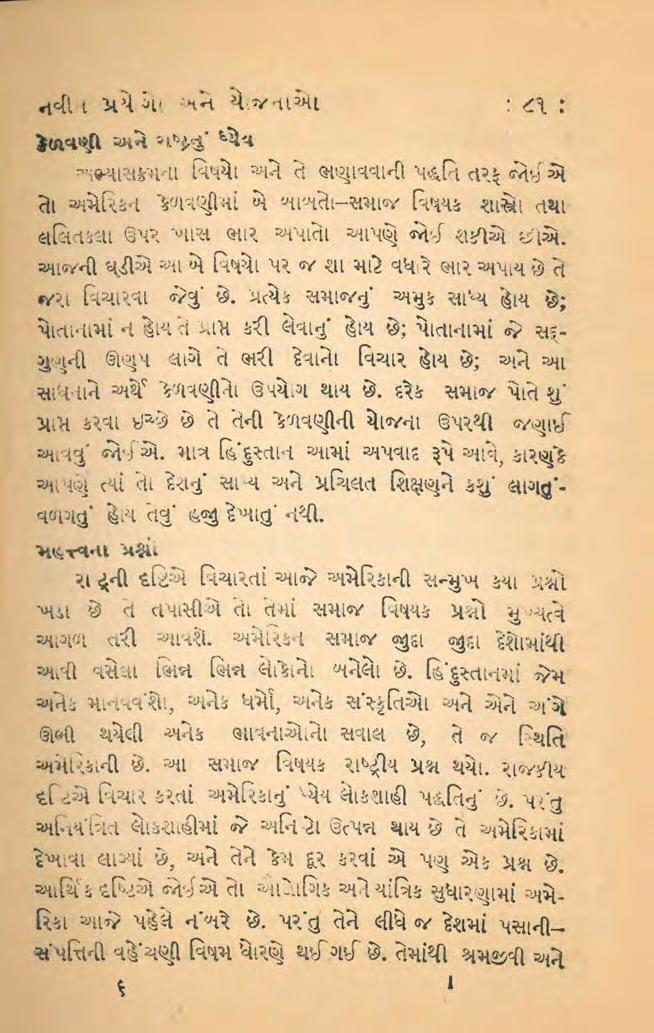 નવીન પ્રયોગો અને યોજનાઓ : ૮૧ :
કેળવણી અને રાષ્ટ્રનું ધ્યેય
અભ્યાસક્રમના વિષયો અને તે ભણાવવાની પદ્ધતિ તરફ જોઈએ
તો અમેરિકન કેળવણીમાં બે બાબતો–સમાજ વિષયક શાસ્ત્રો તથા
લલિતકલા ઉપર ખાસ ભાર અપાતો આપણે જોઈ શકીએ છીએ.
આજની ઘડીએ આ બે વિષયો પર જ શા માટે વધારે ભાર અપાય છે તે
જરા વિચારવા જેવું છે. પ્રત્યેક સમાજનું અમુક સાધ્ય હોય છે;
પોતાનામાં ન હોય તે પ્રાપ્ત કરી લેવાનું હોય છે; પોતાનામાં જે સદ્-
ગુણની ઊણપ લાગે તે ભરી દેવાનો વિચાર હોય છે; અને આ
સાધનાને અર્થે કેળવણીનો ઉપયોગ થાય છે. દરેક સમાજ પોતે શું
પ્રાપ્ત કરવા ઇચ્છે છે તે તેની કેળવણીની યોજના ઉપરથી જણાઈ
આવવું જોઈએ. માત્ર હિંદુસ્તાન આમાં અપવાદ રૂપે આવે, કારણકે
આપણે ત્યાં તો દેશનું સાધ્ય અને પ્રચિલત શિક્ષણને કશું લાગતું-
વળગતું હોય તેવું હજુ દેખાતું નથી.
મહત્ત્વના પ્રશ્નો
રાષ્ટ્રની દૃષ્ટિએ વિચારતાં આજે અમેરિકાની સન્મુખ કયા પ્રશ્નો
ખડા છે તે તપાસીએ તો તેમાં સમાજ વિષયક પ્રશ્નો મુખ્યત્વે
આગળ તરી આવશે. અમેરિકન સમાજ જુદા જુદા દેશોમાંથી
આવી વસેલા ભિન્ન ભિન્ન લોકોનો બનેલો છે. હિંદુસ્તાનમાં જેમ
અનેક માનવવંશો, અનેક ધર્મો, અનેક સંસ્કૃતિઓ અને એને અંગે
ઊભી થયેલી અનેક ભાવનાઓનો સવાલ છે, તે જ સ્થિતિ
અમેરિકાની છે. આ સમાજ વિષયક રાષ્ટ્રીય પ્રશ્ન થયો. રાજકીય
દૃષ્ટિએ વિચાર કરતાં અમેરિકાનું ધ્યેય લોકશાહી પદ્ધતિનું છે. પરંતુ
અનિયંત્રિત લોકશાહીમાં જે અનિષ્ટો ઉત્પન્ન થાય છે તે અમેરિકામાં
દેખાવા લાગ્યાં છે, અને તેને કેમ દૂર કરવાં એ પણ એક પ્રશ્ન છે.
આર્થિક દૃષ્ટિએ જોઈએ તો ઔદ્યોગિક અને યાંત્રિક સુધારણામાં અમે-
રિકા આજે પહેલે નંબરે છે. પરંતુ તેને લીધે જ દેશમાં પૈસાની–
સંપત્તિની વહેંચણી વિષમ ધોરણે થઈ ગઈ છે. તેમાંથી શ્રમજીવી અને
૬